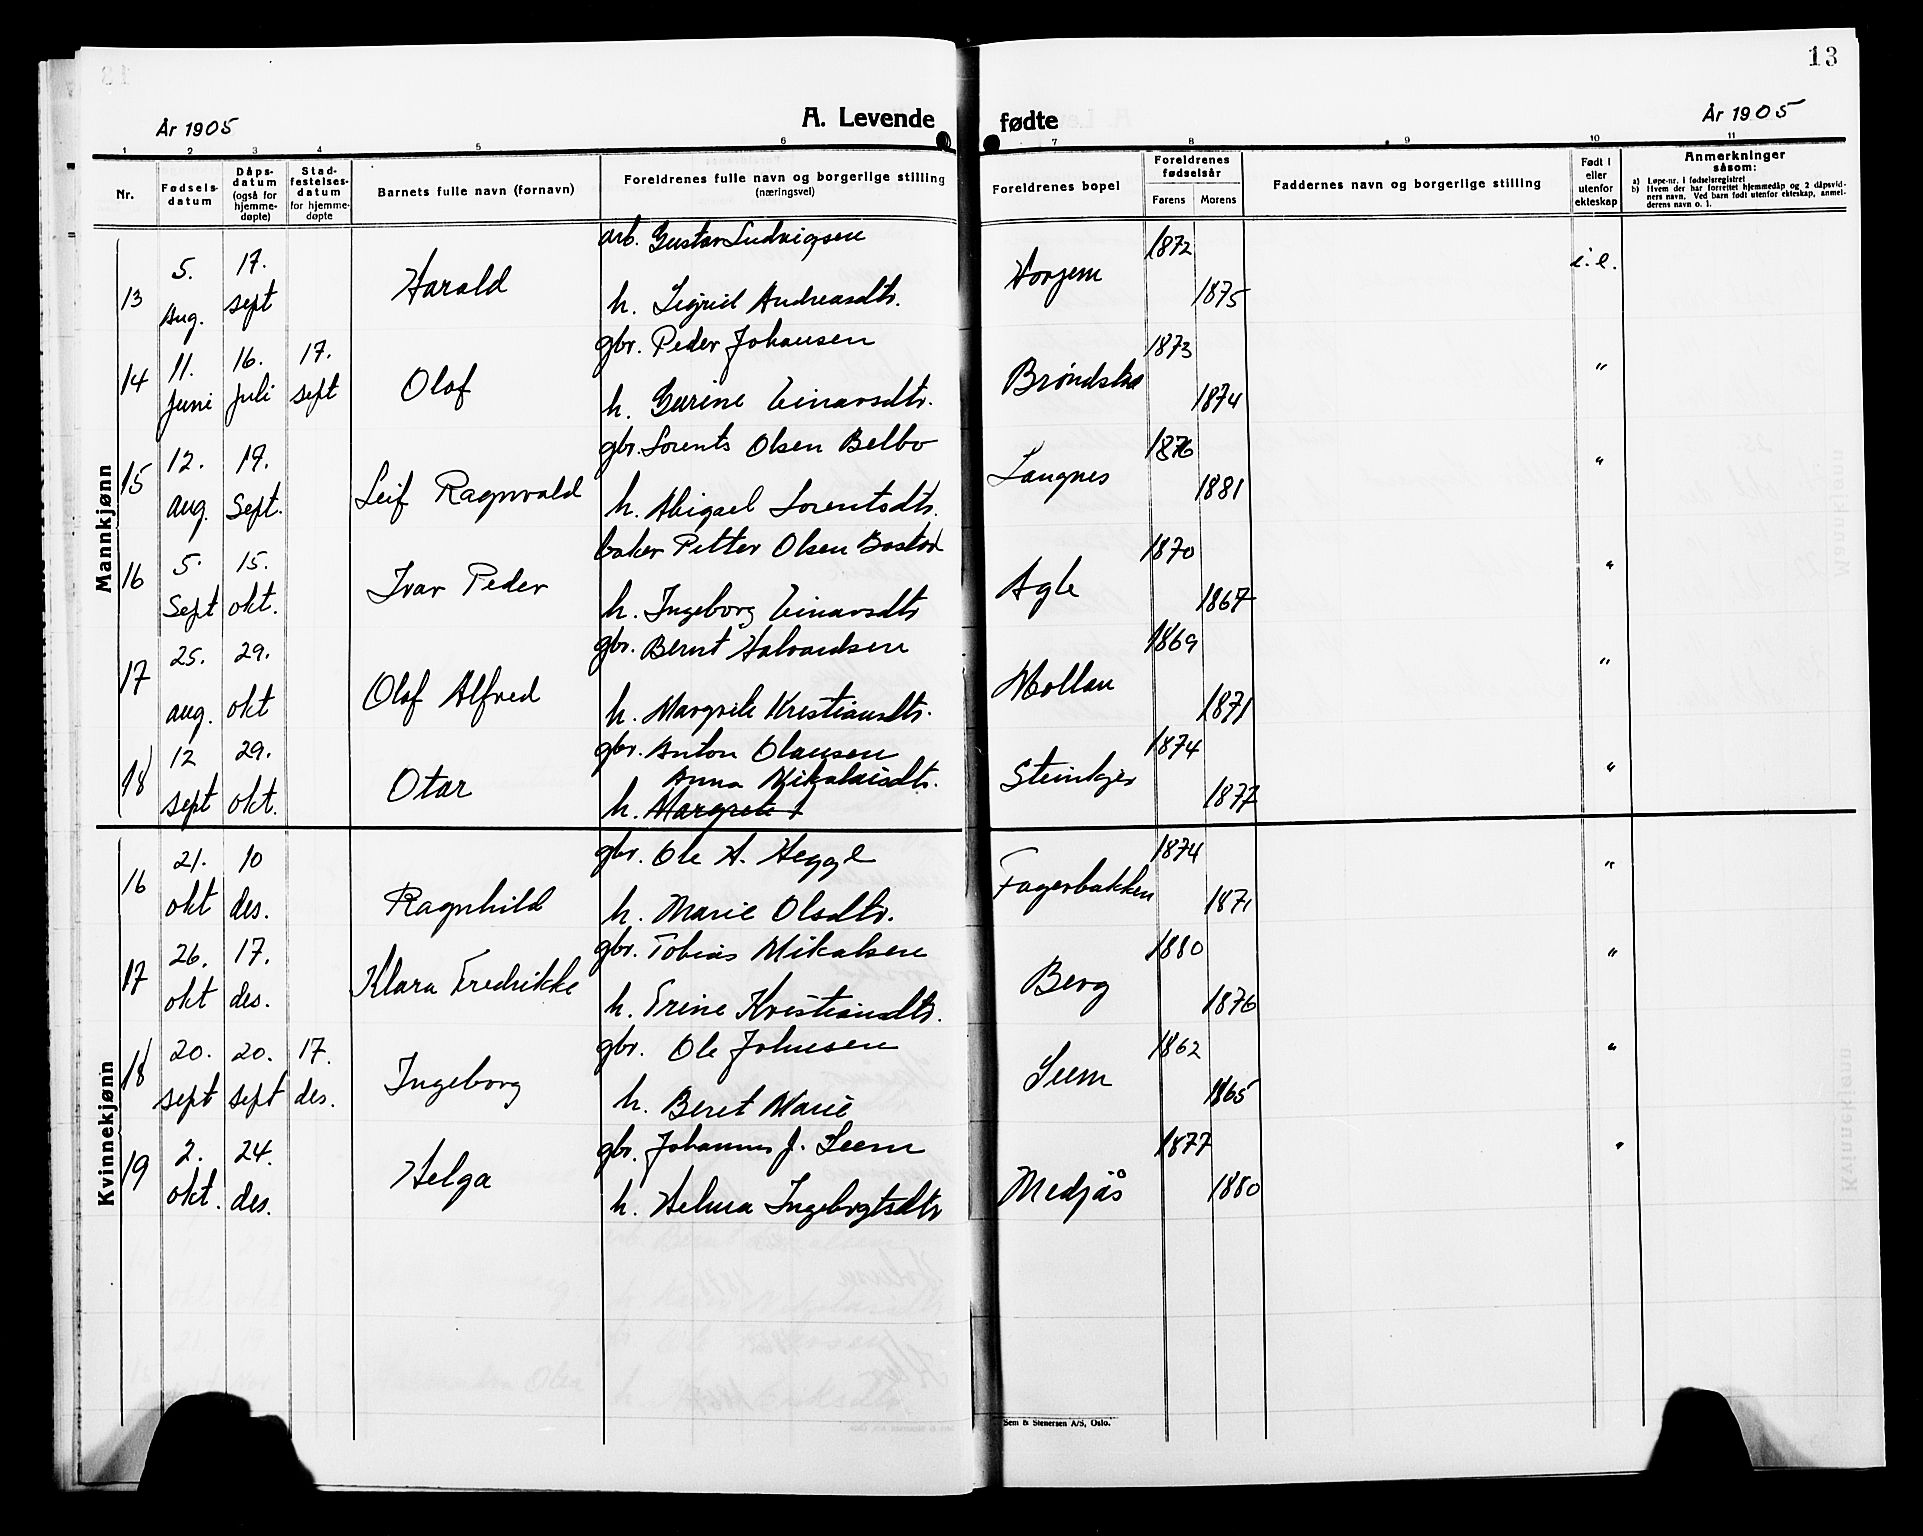 13
År 1905 A. Levende fødte År 1905
1 2 3 4 5 6 7 8 9 10 11
Nr. Fødsels-datum Dåps-datum (også for hjemme-døpte) Stad-festelses-datum for hjemme-døpte Barnets fulle navn (fornavn) Foreldrenes fulle navn og borgerlige stilling (næringsvei) Foreldrenes bopel Foreldrenes fødselsår Farens Morens Faddernes navn og borgerlige stilling Født i eller utenfor ekteskap Anmerkninger såsom:
a) Løpe-nr. i fødselsregistret
b) Hvem der har forrettet hjemmedåp og 2 dåpsvidners navn. Ved barn født utenfor ekteskap, anmelderens navn o. l.
Mannkjønn
13 5. Aug. 17. sept Harald arb. Gustav Ludvigsen 1872 i.e.
h. Sigrid Andreasdtr. 1875
14 11. juni 16. juli 17. sept Olaf gbr. Peder Johansen 1873 "
h. Gurine Einarsdtr. 1874
15 12. aug. 17. Sept. Leif Ragnvald gbr. Lorents Olsen Belbo Langnes 1876 "
h. Abigael Lorentsdtr. 1881
16 5. Sept 15. okt. Ivar Peder baker Petter Olsen Agle 1870 "
h. Ingeborg Einarsdtr 1867
17 25. aug. 29. okt Olaf Alfred gbr. Bernt Halvardsen Mollan 1869 "
h. Margrete Kristiansdtr. 1871
18 12 sept 29. okt. Otar gbr. Anton Olausen Steinkjer 1874 "
Anna Nikolaisdtr.
h. Margrete 1877
Kvinnekjønn
16 21. okt 10 des. Ragnhild gbr. Ole A. Heggl Fagerbakken 1874 "
h. Marie Olsdtr. 1871
17 26. okt 17. des. Klara Fredrikke gbr. Tobias Mikalsen Berg 1880 "
h. Trine Kristiansdtr. 1876
18 20. sept 20. sept 17. des. Ingeborg gbr. Ole Johnsen Seem 1862 "
h. Beret Marie 1865
19 2. okt. 24. des. Helga gbr. Johannes J. Seem Medjås 1877 "
h. Helma Ingebrigtsdtr 1880
Sem & Stenersen A/S, Oslo.